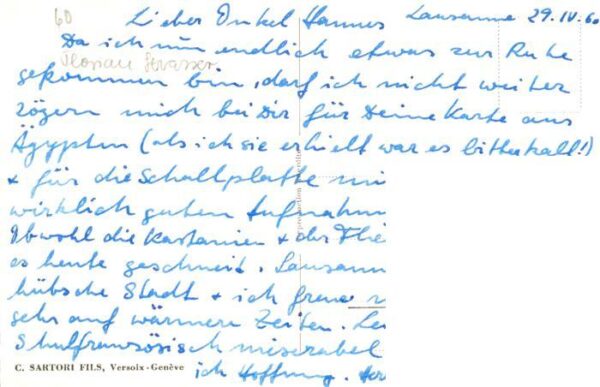 60
Lieber Onkel Hannes Lausanne 29.IV.60
Da ich nun endlich etwas zur Ruhe
gekommen bin, darf ich nicht weiter
zögern mich bei Dir für Deine Karte aus
Ägypten (als ich sie erhielt war es bitterkalt!)
+ für die Schallplatte mi
wirklich guten Aufnahm
Obwohl die Kastanien + der Flie
es heute geschneit. Lausann
hübsche Stadt + ich freue
sehr auf wärmere Zeiten.
Schulfranzösisch miserabel
C. SARTORI FILS, Versoix-Genève
ich Hoffnung.